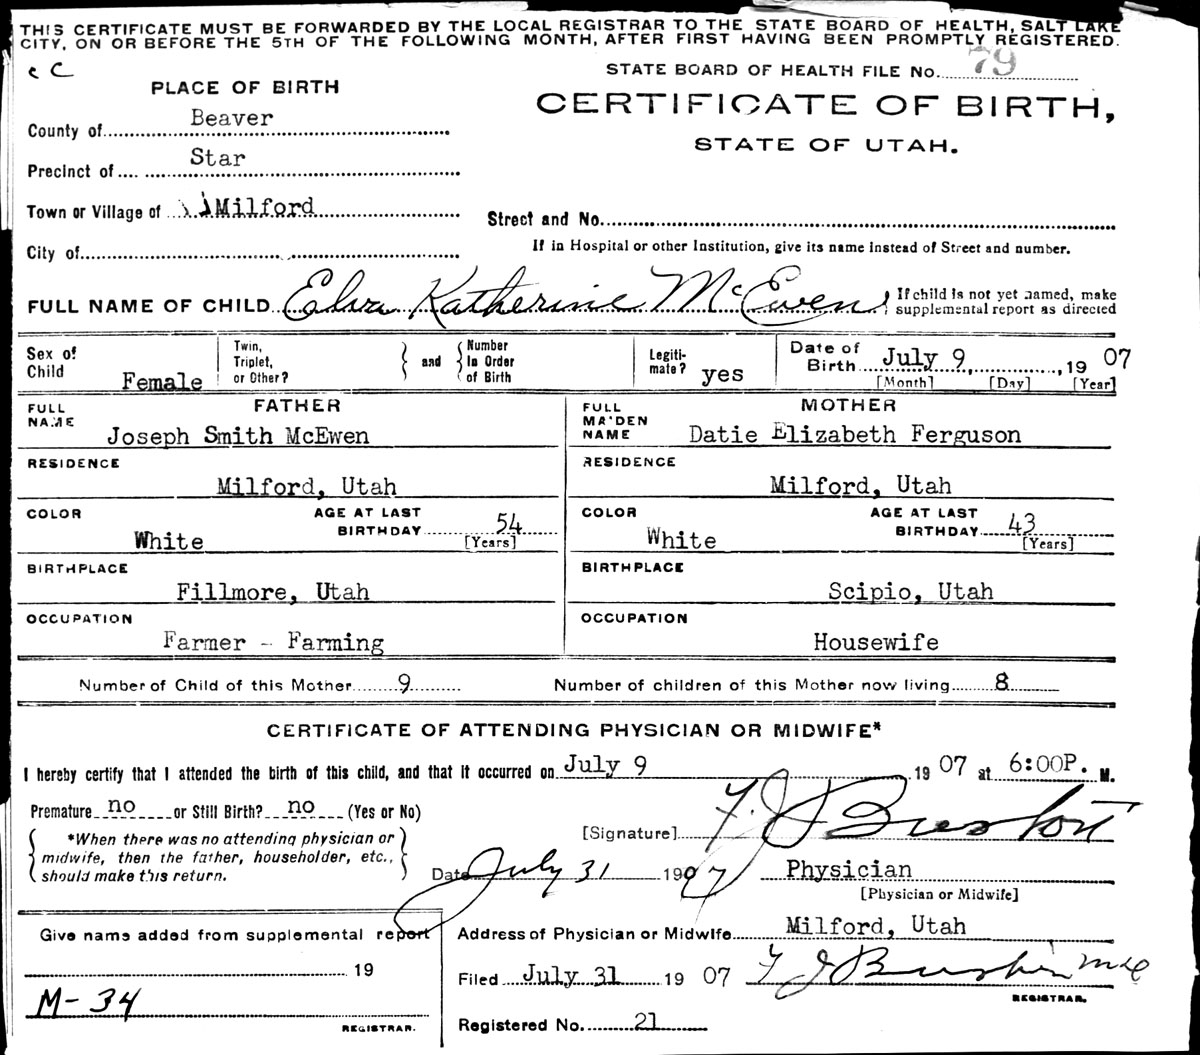 THIS CERTIFICATE MUST BE FORWARDED BY THE LOCAL REGISTRAR TO THE STATE BOARD OF HEALTH, SALT LAKE
CITY, ON OR BEFORE THE 5TH OF THE FOLLOWING MONTH, AFTER FIRST HAVING BEEN PROMPTLY REGISTERED.
c C
STATE BOARD OF HEALTH FILE No. 79
PLACE OF BIRTH
CERTIFICATE OF BIRTH,
STATE OF UTAH.
County of Beaver
Precinct of Star
Town or Village of Milford
Street and No.
City of
If in Hospital or other Institution, give its name instead of Street and number.
FULL NAME OF CHILD Elva Katherine McEwen
If child is not yet named, make
supplemental report as directed
Sex of Child Female
Twin, Triplet, or Other?
and
Number In Order of Birth
Legiti-mate? yes
Date of Birth July 9, 1907
[Month] [Day] [Year]
FATHER
FULL NAME Joseph Smith McEwen
MOTHER
FULL MAIDEN NAME Datie Elizabeth Ferguson
RESIDENCE Milford, Utah
RESIDENCE Milford, Utah
COLOR White
AGE AT LAST BIRTHDAY 54 [Years]
COLOR White
AGE AT LAST BIRTHDAY 43 [Years]
BIRTHPLACE Fillmore, Utah
BIRTHPLACE Scipio, Utah
OCCUPATION Farmer - Farming
OCCUPATION Housewife
Number of Child of this Mother 9
Number of children of this Mother now living 8
CERTIFICATE OF ATTENDING PHYSICIAN OR MIDWIFE*
I hereby certify that I attended the birth of this child, and that it occurred on July 9 1907 at 6:00P. M.
Premature no or Still Birth? no (Yes or No)
*When there was no attending physician or
midwife, then the father, householder, etc.,
should make this return.
[Signature] F. J.
Date July 31 1907
Physician
[Physician or Midwife]
Give name added from supplemental report
19
M-34
REGISTRAR.
Address of Physician or Midwife Milford, Utah
Filed July 31 1907 F J
REGISTRAR.
Registered No. 21